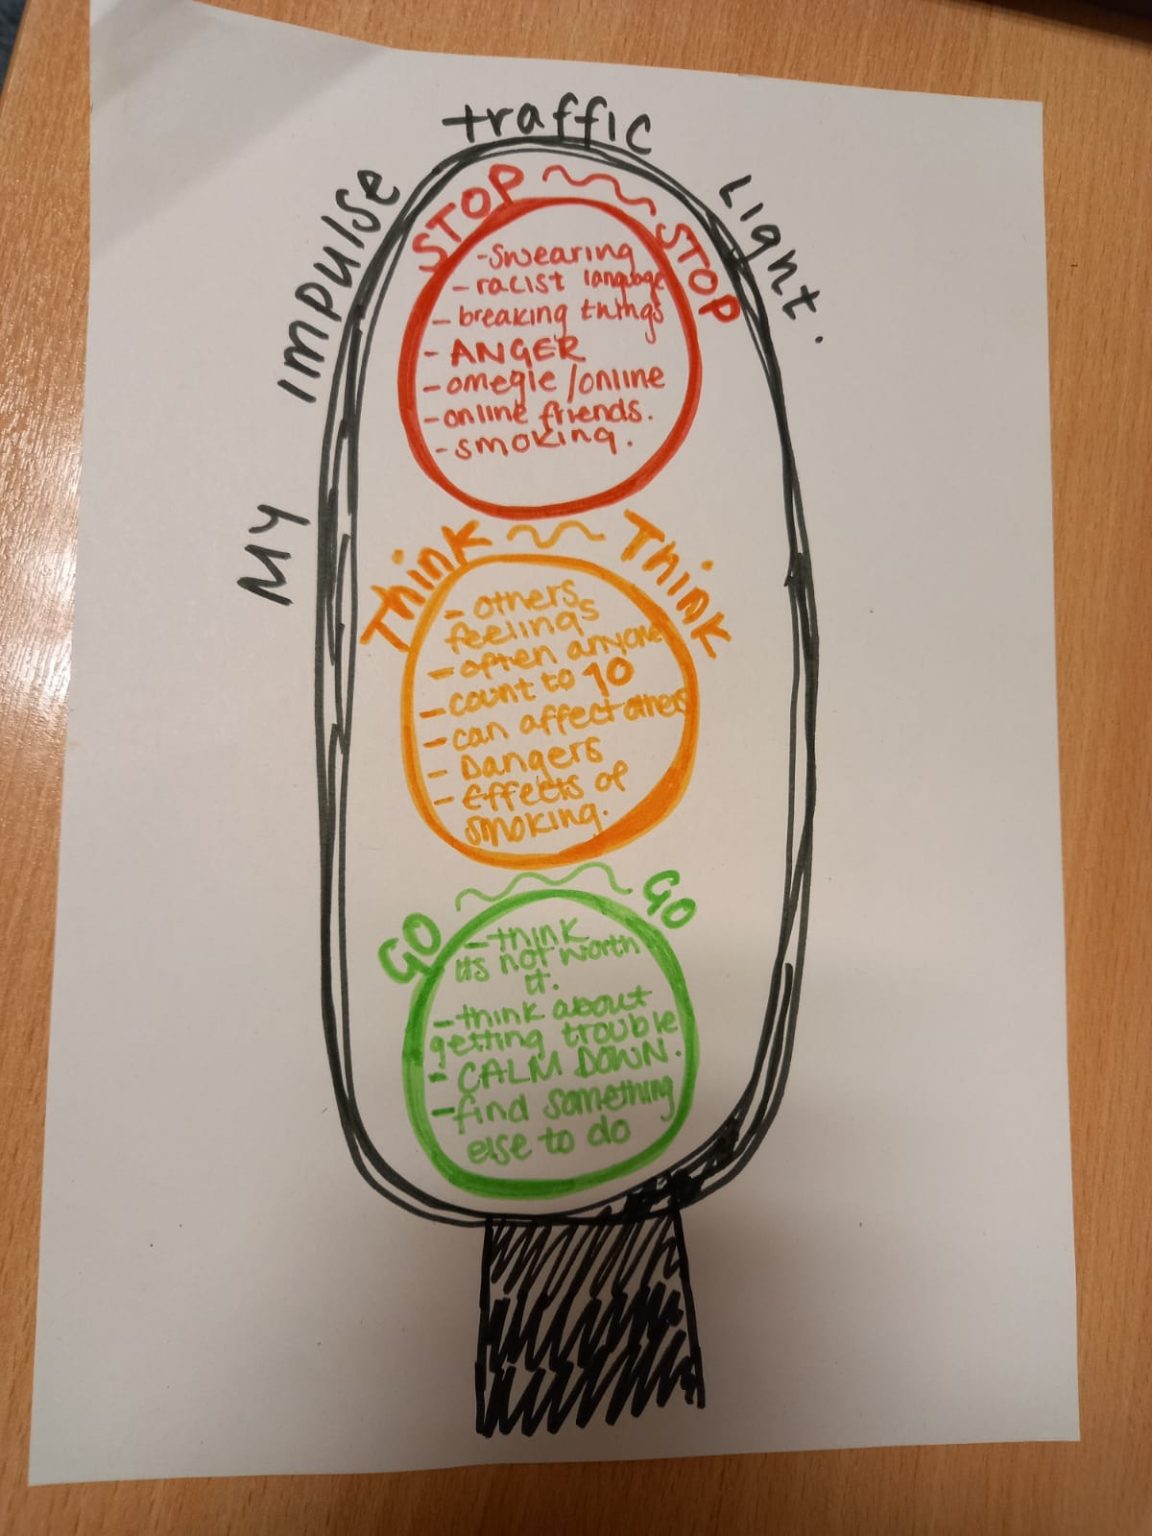 MY IMPULSE traffic Light.
STOP STOP
-Swearing
- racist language
- breaking things
- ANGER
- omegle/online
- online friends.
- smoking.
Think Think
- others
feelings
- often anyone
- count to 10
- can affect others
- Dangers
- Effects of
smoking.
GO GO
- think
its not worth
it.
- think about
getting trouble
- CALM DOWN.
- find something
else to do